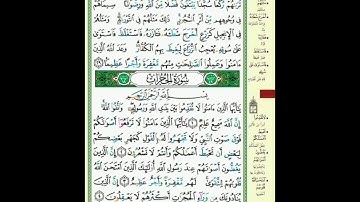 تَرَىٰهُمْ رُكَّعًا سُجَّدًا يَبْتَغُونَ فَضْلًا مِّنَ ٱللَّهِ وَرِضْوَٰنًا سِيمَاهُمْ
فِى وُجُوهِهِم مِّنْ أَثَرِ ٱلسُّجُودِ ذَٰلِكَ مَثَلُهُمْ فِى ٱلتَّوْرَىٰةِ وَمَثَلُهُمْ
فِى ٱلْإِنجِيلِ كَزَرْعٍ أَخْرَجَ شَطْـَٔهُۥ فَـَٔازَرَهُۥ فَٱسْتَغْلَظَ فَٱسْتَوَىٰ
عَلَىٰ سُوقِهِۦ يُعْجِبُ ٱلزُّرَّاعَ لِيَغِيظَ بِهِمُ ٱلْكُفَّارَ وَعَدَ ٱللَّهُ ٱلَّذِينَ
ءَامَنُوا۟ وَعَمِلُوا۟ ٱلصَّٰلِحَٰتِ مِنْهُم مَّغْفِرَةً وَأَجْرًا عَظِيمًۢا
سُورَةُ الحُجُرَاتِ
بِسْمِ ٱللَّهِ ٱلرَّحْمَٰنِ ٱلرَّحِيمِ
يَٰٓأَيُّهَا ٱلَّذِينَ ءَامَنُوا۟ لَا تُقَدِّمُوا۟ بَيْنَ يَدَىِ ٱللَّهِ وَرَسُولِهِۦ وَٱتَّقُوا۟ ٱللَّهَ
إِنَّ ٱللَّهَ سَمِيعٌ عَلِيمٌ ١ يَٰٓأَيُّهَا ٱلَّذِينَ ءَامَنُوا۟ لَا تَرْفَعُوٓا۟ أَصْوَٰتَكُمْ
فَوْقَ صَوْتِ ٱلنَّبِىِّ وَلَا تَجْهَرُوا۟ لَهُۥ بِٱلْقَوْلِ كَجَهْرِ بَعْضِكُمْ
لِبَعْضٍ أَن تَحْبَطَ أَعْمَٰلُكُمْ وَأَنتُمْ لَا تَشْعُرُونَ ٢ إِنَّ ٱلَّذِينَ
يَغُضُّونَ أَصْوَٰتَهُمْ عِندَ رَسُولِ ٱللَّهِ أُو۟لَٰٓئِكَ ٱلَّذِينَ ٱمْتَحَنَ ٱللَّهُ
قُلُوبَهُمْ لِلتَّقْوَىٰ لَهُم مَّغْفِرَةٌ وَأَجْرٌ عَظِيمٌ ٣ إِنَّ ٱلَّذِينَ
يُنَادُونَكَ مِن وَرَآءِ ٱلْحُجُرَٰتِ أَكْثَرُهُمْ لَا يَعْقِلُونَ ٤